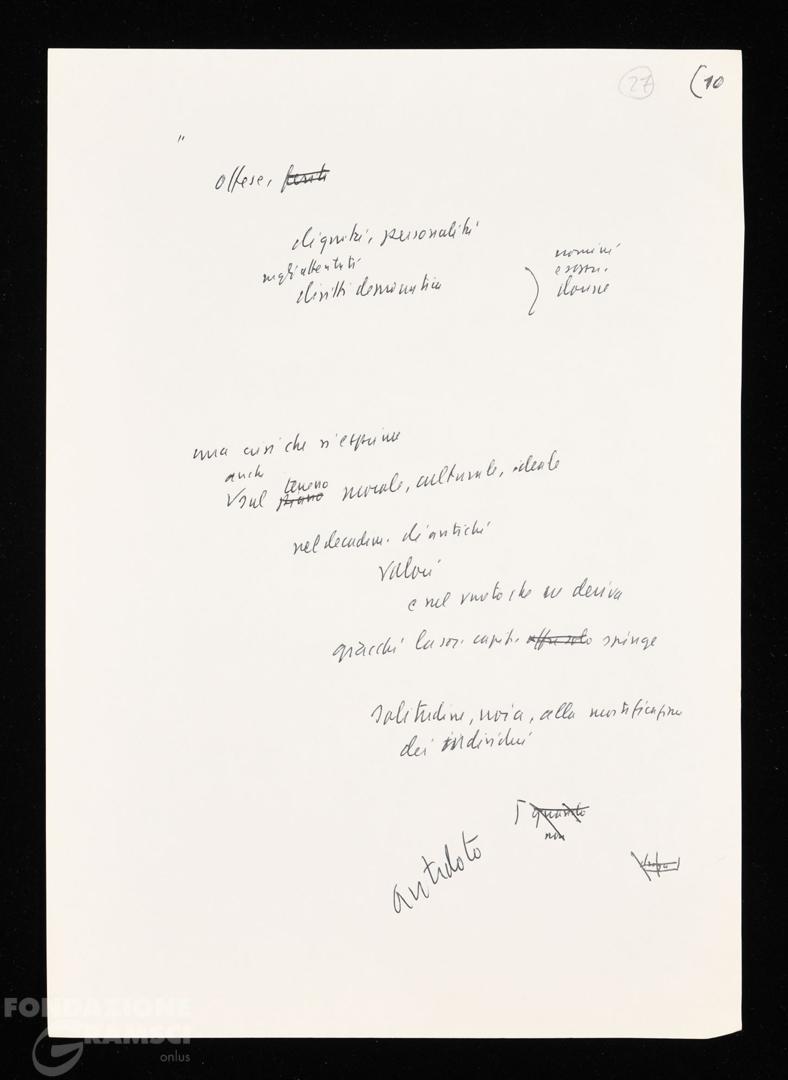 27 (10
"
offese,
dignità, personalità
negli attentati
diritti democratici
uomini
donne
una crisi che si esprime
anche
V sul terreno morale, culturale, ideale
piano
nel decadim. di antichi
valori
e nel vuoto che ne deriva
giacché la soc. capit. spinge
solitudine, noia, alla mortificazione
dei individui
quando
non
antidoto
droga
FONDAZIONE
GRAMSCI
onlus